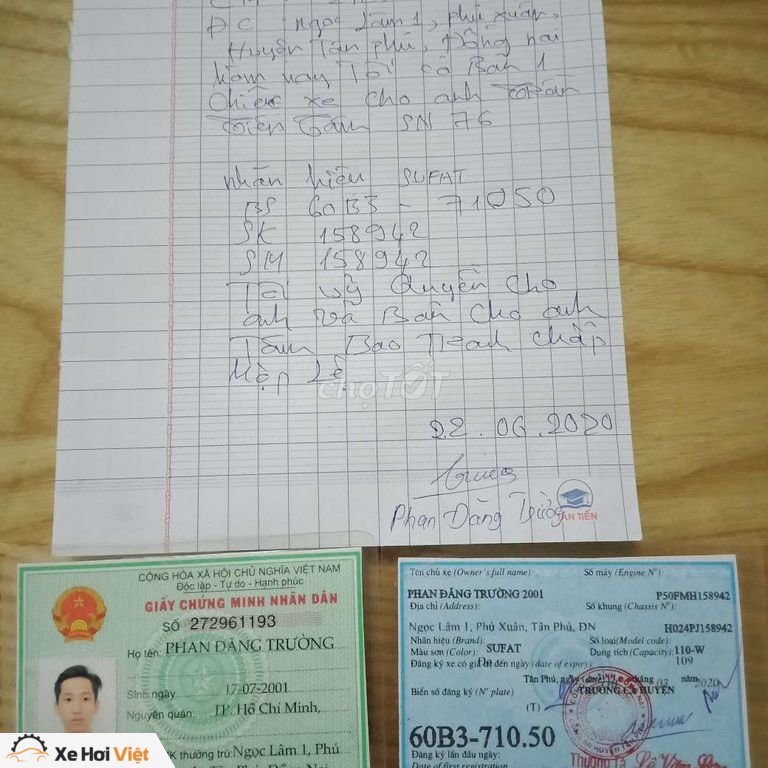 ĐC Ngọc Lâm 1, phú xuân,
Huyện Tân phú, Đồng nai
hôm nay Tôi có Bán 1
chiếc xe cho anh Trần
SN 76
nhãn hiệu SUFAT
BS 60B3 - 71050
SK 158942
SM 158942
Tôi uỷ Quyền cho
anh và Bán cho anh
Tâm Bao Tranh chấp
Hợp Lệ
chợTỐT
22.06.2020
Phan Đăng Trường
AN TIẾN
CỘNG HÒA XÃ HỘI CHỦ NGHĨA VIỆT NAM
Độc lập - Tự do - Hạnh phúc
GIẤY CHỨNG MINH NHÂN DÂN
SỐ 272961193
Họ tên: PHAN ĐĂNG TRƯỜNG
Sinh ngày 17-07-2001
Nguyên quán: TP. Hồ Chí Minh,
ĐK thường trú: Ngọc Lâm 1, Phú
Tên chủ xe (Owner's full name): Số máy (Engine Nº):
PHAN ĐĂNG TRƯỜNG 2001 P50FMH158942
Địa chỉ (Address): Số khung (Chassis Nº):
Ngọc Lâm 1, Phú Xuân, Tân Phú, ĐN H024PJ158942
Nhãn hiệu (Brand): Số loại (Model code):
Màu sơn (Color): SUFAT Dung tích (Capacity): 110-W
Đăng ký xe có giá trị đến ngày (date of expiry) 109
Tân Phú, ngày tháng 03 năm 2020
Biển số đăng ký (Nº plate) TRƯỞNG CA HUYỆN
(T)
60B3-710.50
Đăng ký lần đầu ngày:
Date of first registration
Thượng Tá
Xe Hơi Việt